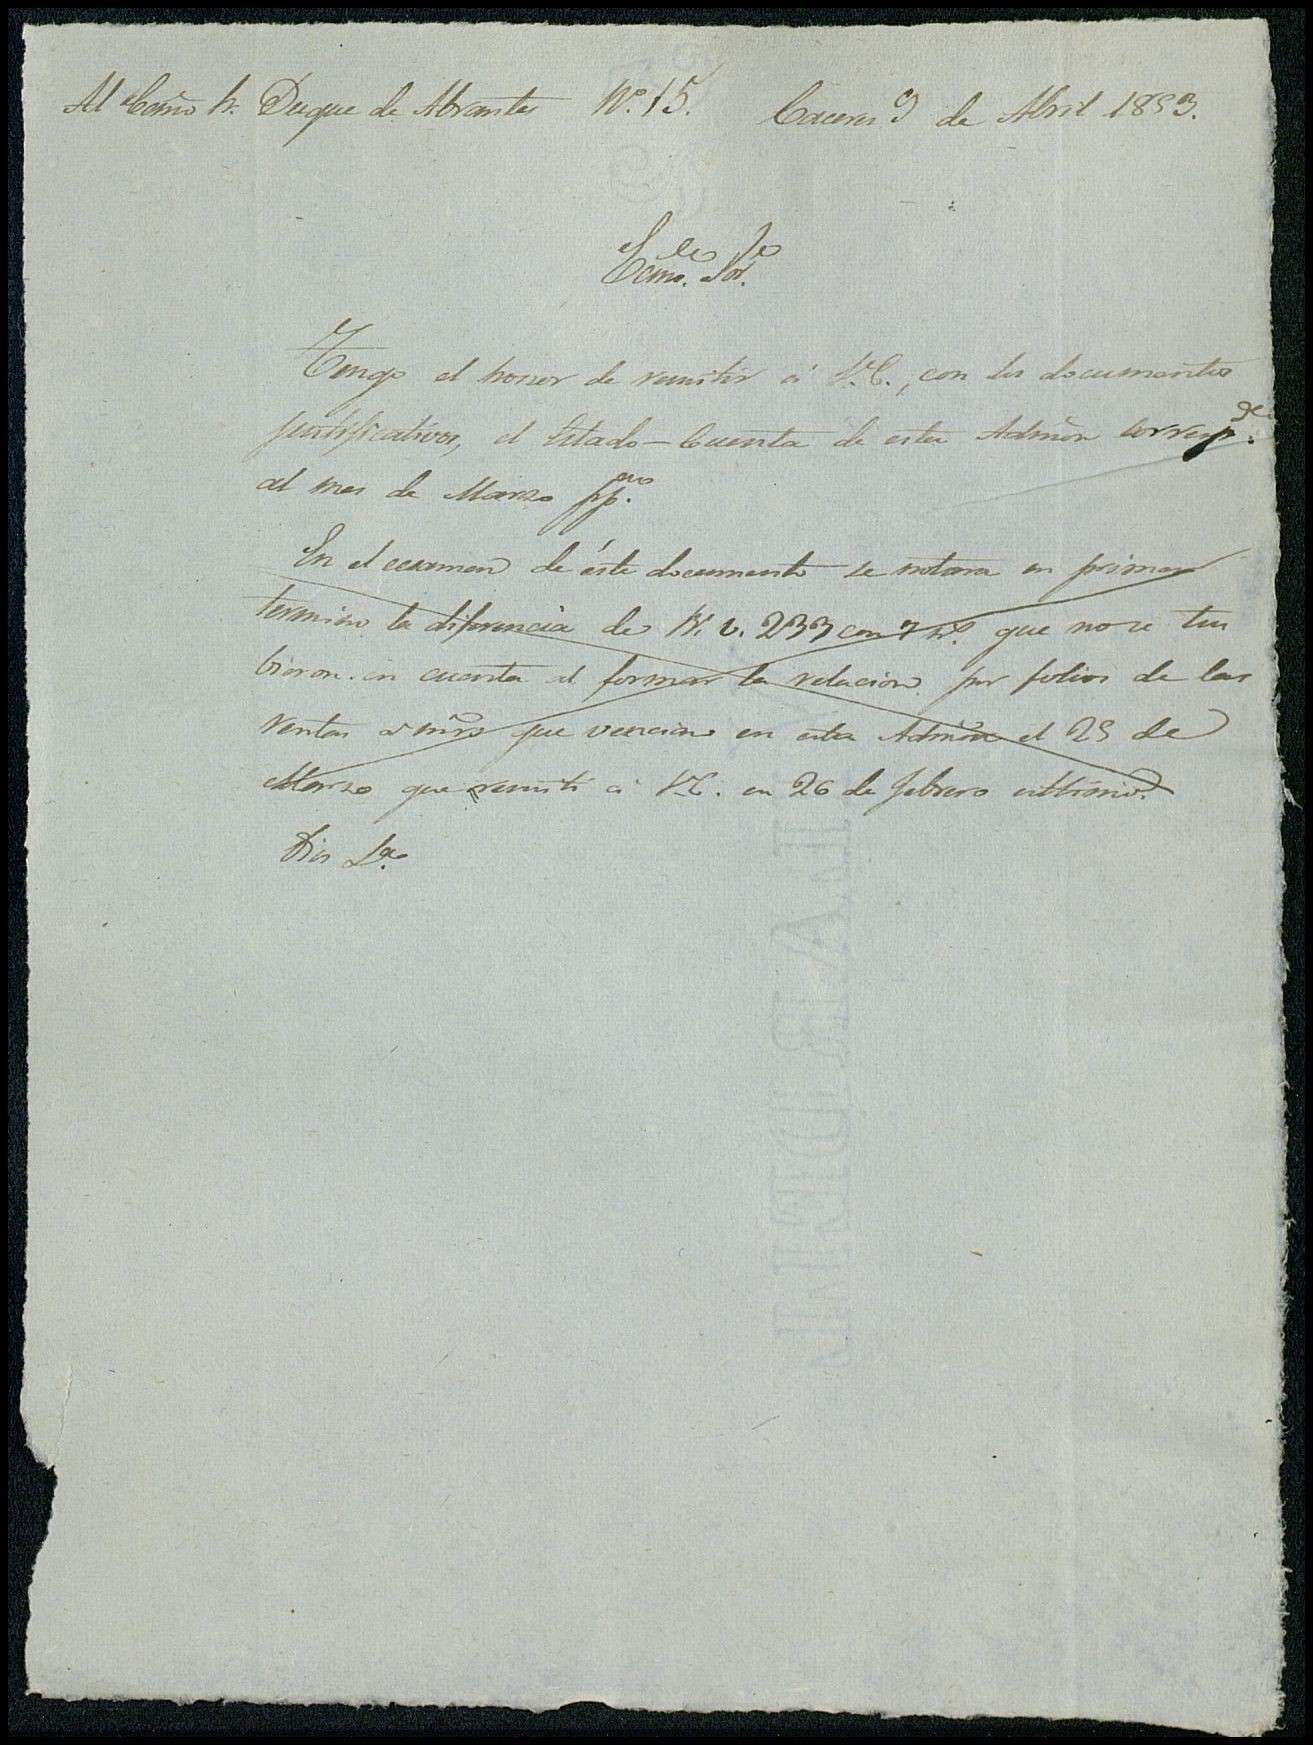 Al Escmo Sr. Duque de Abrantes Nº. 15. Caceres 9 de Abril 1853.
Ecmo. Sor.
Tengo el honor de remitir á V.E., con los documentos
justificativos, el Estado-Cuenta de esta Admón corresp.te
al mes de Marzo pp.do
En el ecsamen de éste documento se notara en primer
termino la diferencia de R. v. 233 con 7 que no se tu
bieron en cuenta al formar la relacion por folios de las
rentas que vencian en esta Admón el 25 de
Marzo que remiti á V.E. en 26 de febrero ultimo.
Dios